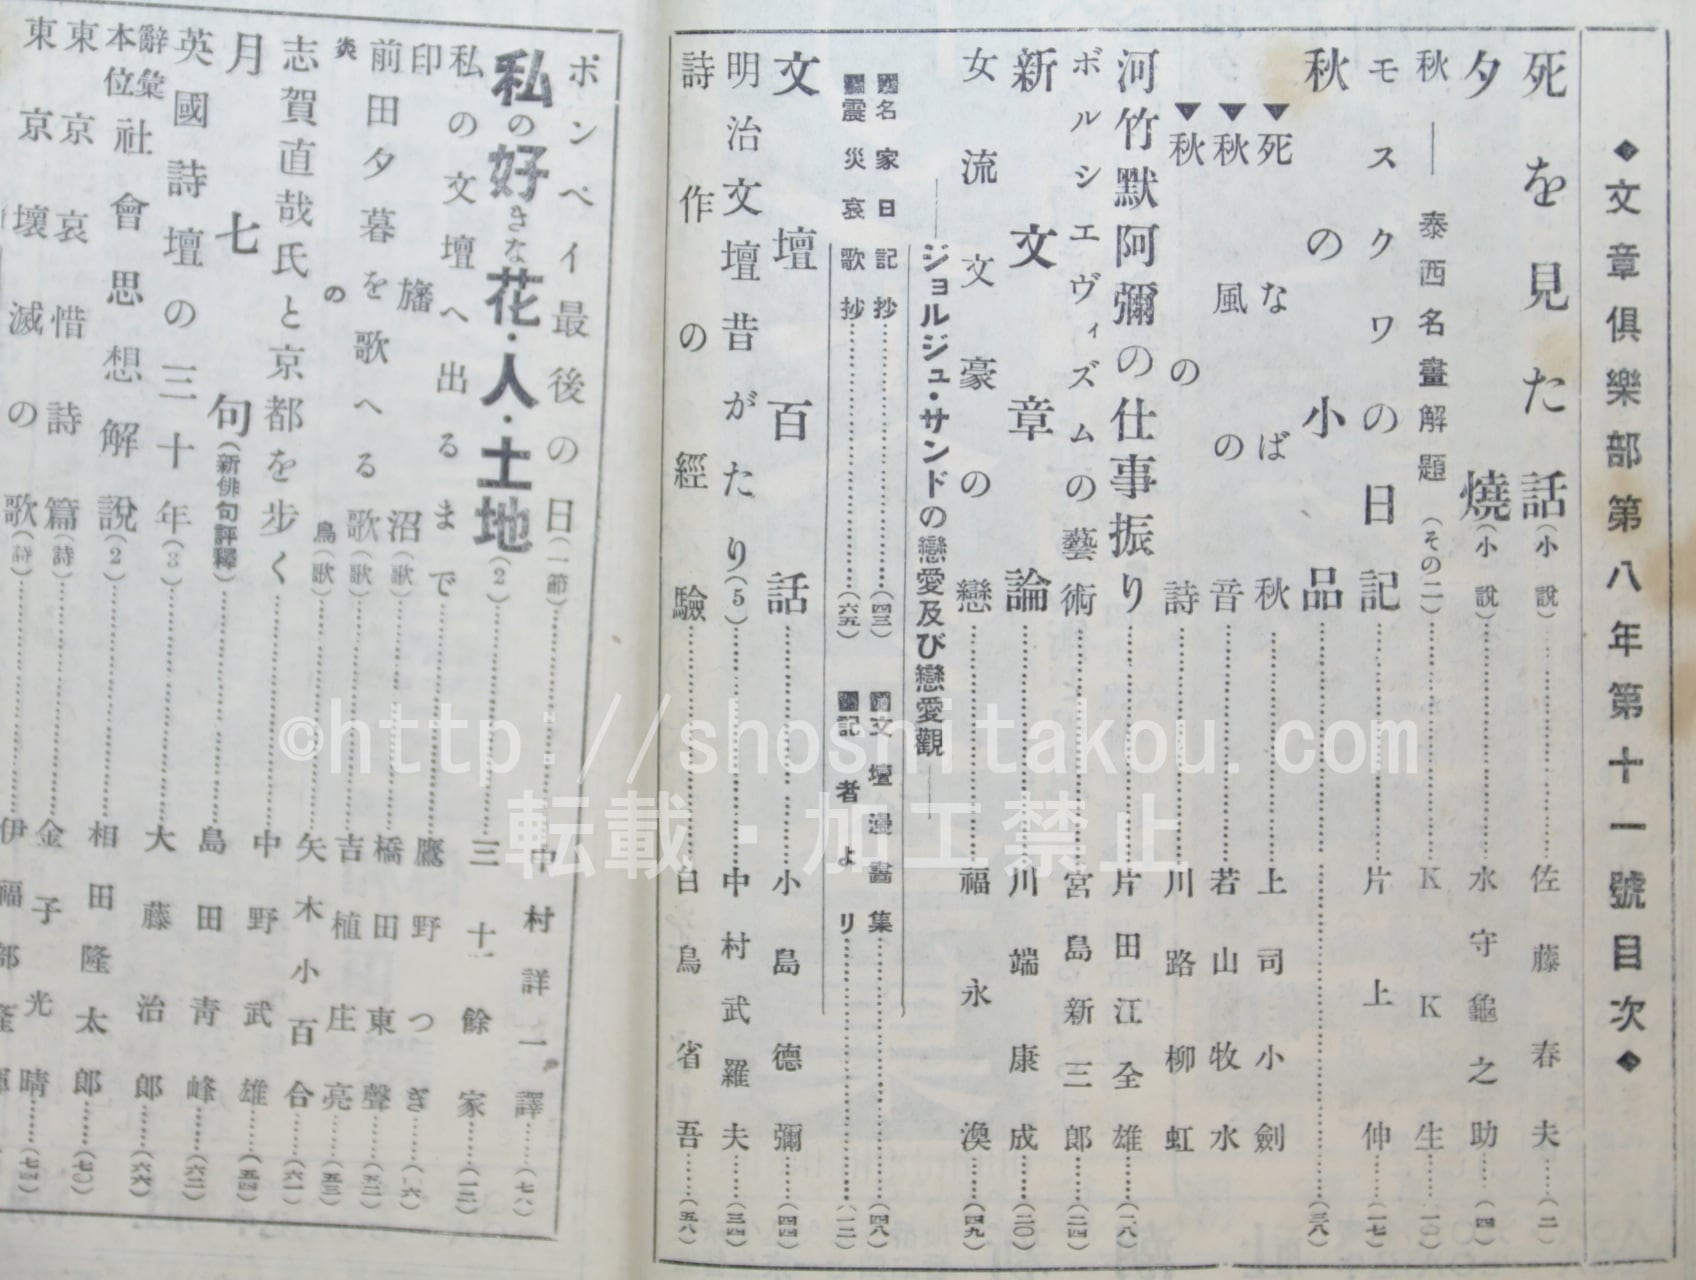 ◆文章倶樂部第八年第十一號目次◆
死を見た話(小說)……佐藤春夫……(二)
夕燒(小說)……水守龜之助……(四)
秋―泰西名畫解題(その二)……KK生……(一〇)
モスクワの日記……片上伸……(一七)
秋の小品……(三八)
▼死なば秋……上司小劍
▼秋風の音……若山牧水
▼秋の詩……川路柳虹
河竹默阿彌の仕事振り……片田江全雄……(一八)
ボルシエヴィズムの藝術……宮島新三郎……(二四)
新文章論……川端康成……(二〇)
女流文豪の戀……福永渙……(四九)
―ジョルジュ・サンドの戀愛及び戀愛觀―
名家日記抄……(四三)
文壇漫畵集……(四八)
震災哀歌抄……(六五)
記者より……(一二)
文壇百話……小島德彌……(四四)
明治文壇昔がたり(5)……中村武羅夫……(三四)
詩作の經驗……白鳥省吾……(五八)
ポンペイ最後の日(一節)……中村詳一譯……(七八)
私の好きな花・人・土地(2)……三十餘家……(一二)
私の文壇へ出るまで……鷹野つぎ
印旛沼(歌)……橋田東聲……(五二)
前田夕暮を歌へる歌(歌)……吉植庄亮……(五三)
炎の鳥(歌)……矢木小百合……(六一)
志賀直哉氏と京都を步く……中野武雄……(五四)
月七句(新俳句評釋)……島田靑峰……(六二)
英國詩壇の三十年(3)……大藤治郎……(六六)
辭彙本位社會思想解說(2)……相田隆太郎……(七〇)
東京哀惜詩篇(詩)……金子光晴……(七四)
東京壞滅の歌(詩)……伊福部隆輝
©http://shoshitakou.com
転載・加工禁止